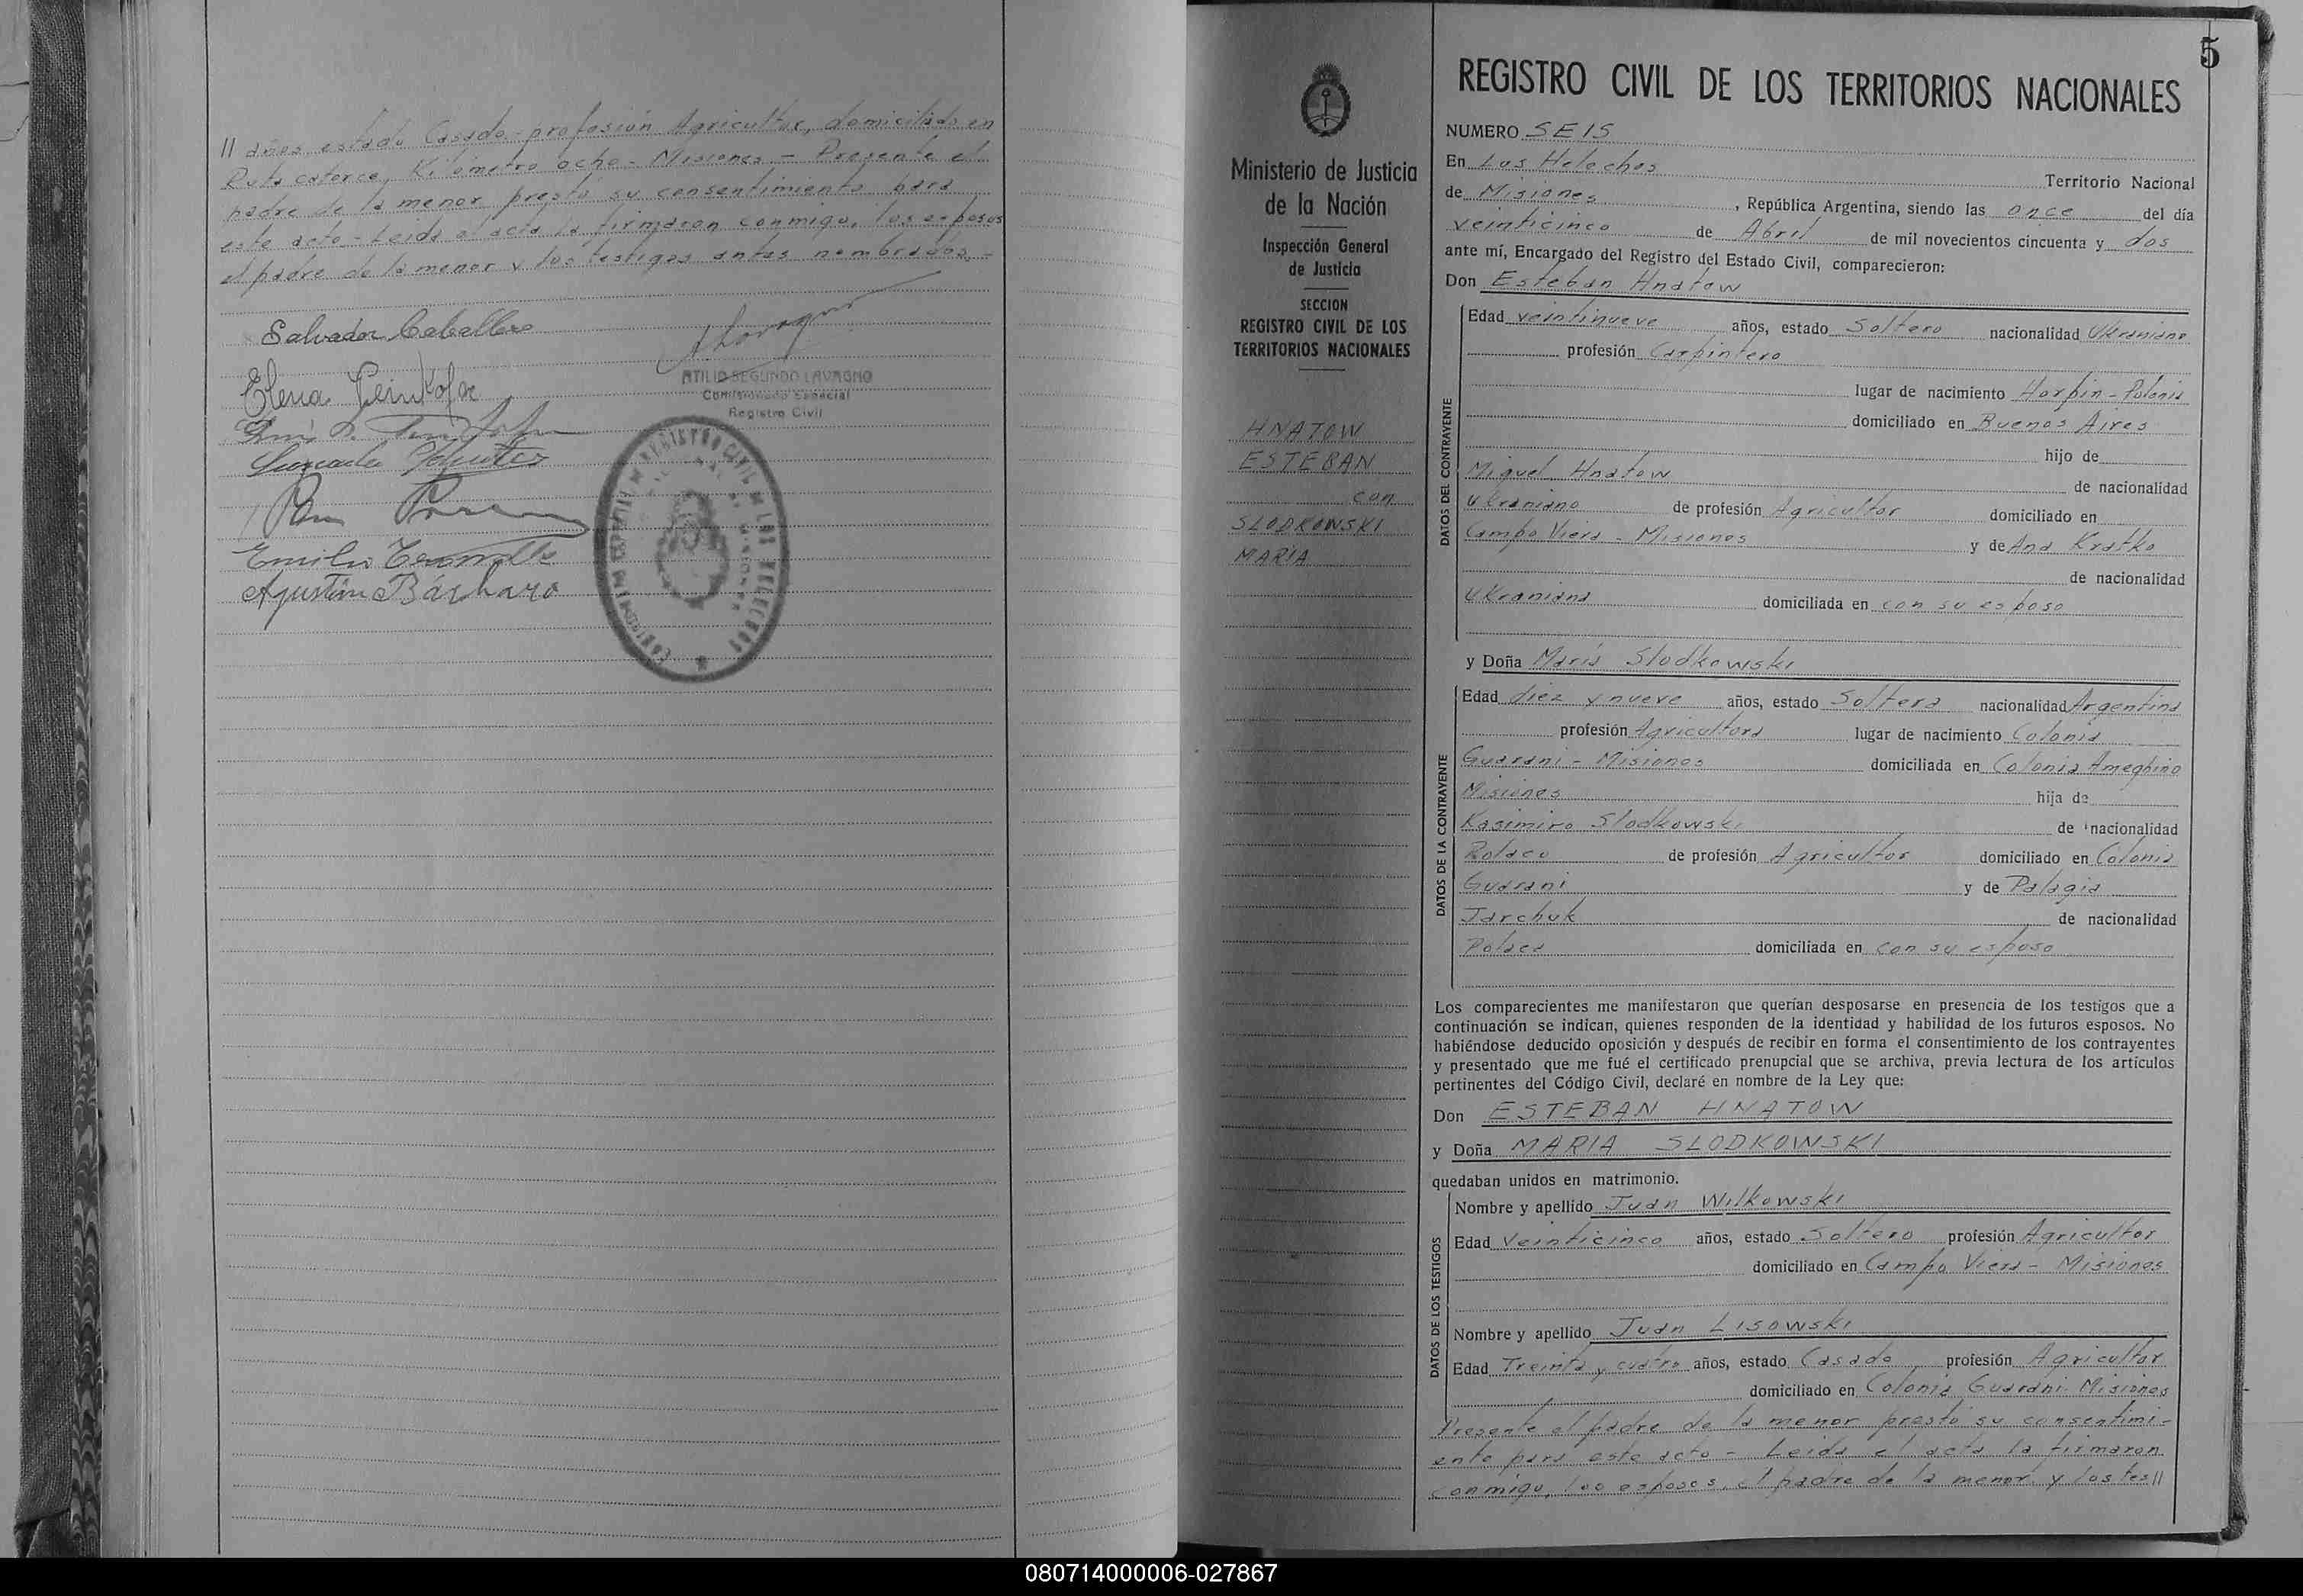 // años estado Casado - profesión Agricultor, domiciliado en
Ruta catorce, Kilómetro ocho - Misiones - Presente el
padre de la menor prestó su consentimiento para
este acto - Leida el acta la firmaron conmigo, los esposos
el padre de la menor y los testigos antes nombrados. -
Salvador Caballero
Elena
ATILIO SEGUNDO LAVAGNO
Comisionado Especial
Registro Civil
Emilio
Agustín Bárbaro
5
Ministerio de Justicia
de la Nación
Inspección General
de Justicia
SECCION
REGISTRO CIVIL DE LOS
TERRITORIOS NACIONALES
HNATOW
ESTEBAN
con
SLODKOWSKI
MARIA
REGISTRO CIVIL DE LOS TERRITORIOS NACIONALES
NUMERO SEIS
En Los Helechos Territorio Nacional
de Misiones, República Argentina, siendo las once del día
veinticinco de Abril de mil novecientos cincuenta y dos
ante mí, Encargado del Registro del Estado Civil, comparecieron:
Don Esteban Hnatow
DATOS DEL CONTRAYENTE
Edad veintinueve años, estado Soltero nacionalidad Ukraniano
profesión Carpintero
lugar de nacimiento Horpin - Polonia
domiciliado en Buenos Aires
hijo de
Miguel Hnatow de nacionalidad
Ukraniano de profesión Agricultor domiciliado en
Campo Viera - Misiones y de Ana Kratko
de nacionalidad
Ukraniana domiciliada en con su esposo
y Doña María Slodkowski
DATOS DE LA CONTRAYENTE
Edad diez y nueve años, estado Soltera nacionalidad Argentina
profesión Agricultora lugar de nacimiento Colonia
Guarani - Misiones domiciliada en Colonia Ameghino
Misiones hija de
Kasimiro Slodkowski de nacionalidad
Polaco de profesión Agricultor domiciliado en Colonia
Guarani y de Palagia
Jarchuk de nacionalidad
Polaca domiciliada en con su esposo
Los comparecientes me manifestaron que querían desposarse en presencia de los testigos que a
continuación se indican, quienes responden de la identidad y habilidad de los futuros esposos. No
habiéndose deducido oposición y después de recibir en forma el consentimiento de los contrayentes
y presentado que me fué el certificado prenupcial que se archiva, previa lectura de los artículos
pertinentes del Código Civil, declaré en nombre de la Ley que:
Don ESTEBAN HNATOW
y Doña MARIA SLODKOWSKI
quedaban unidos en matrimonio.
DATOS DE LOS TESTIGOS
Nombre y apellido Juan Wilkowski
Edad Veinticinco años, estado Soltero profesión Agricultor
domiciliado en Campo Viera - Misiones
Nombre y apellido Juan Lisowski
Edad Treinta y cuatro años, estado Casado profesión Agricultor
domiciliado en Colonia Guarani Misiones
Presente el padre de la menor prestó su consentimi-
ento para este acto - Leida el acta la firmaron
conmigo, los esposos, el padre de la menor y los tes//
080714000006-027867